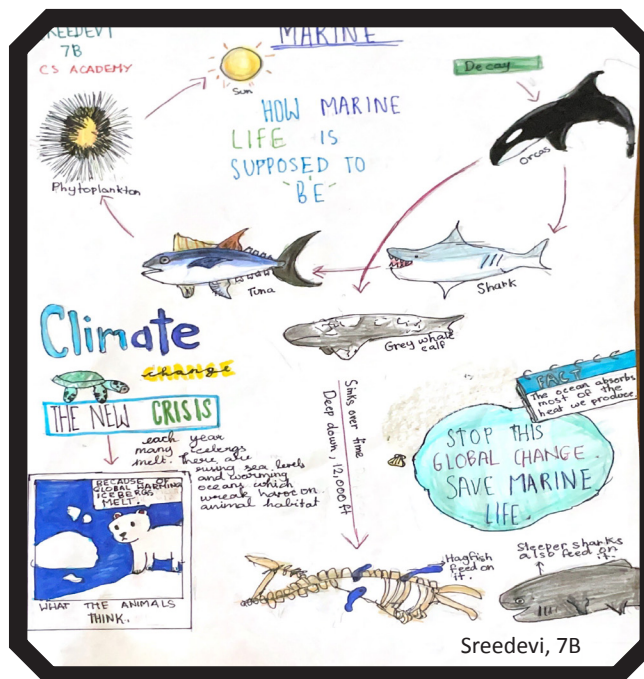 SREEDEVI
7B
CS ACADEMY
MARINE
Sun
Decay
Orcas
Phytoplankton
HOW MARINE
LIFE IS
SUPPOSED TO
BE
Tuna
Shark
Grey whale
calf
Climate
change
THE NEW CRISIS
each year
many icebergs
melt. There are
rising sea levels
and worming
oceans which
wreak havoc on
animal habitat
BECAUSE OF
GLOBAL WARMING
ICEBERGS
MELT.
WHAT THE ANIMALS
THINK.
Sinks over time
Deep down, 12,000ft
FACT
The ocean absorbs
most of the
heat we produce.
STOP THIS
GLOBAL CHANGE.
SAVE MARINE
LIFE.
Hagfish
feed on
it.
Sleeper sharks
also feed on
it.
Sreedevi, 7B